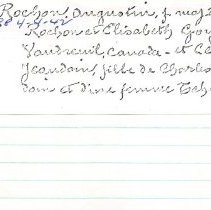 Rochon, Augustin, f. maj.
4-9-42
Rochon et Elisabeth Gou
Vaudreuil, Canada - et Cé
Jeaudoin, fille de Charles
doin et d'une femme Tch